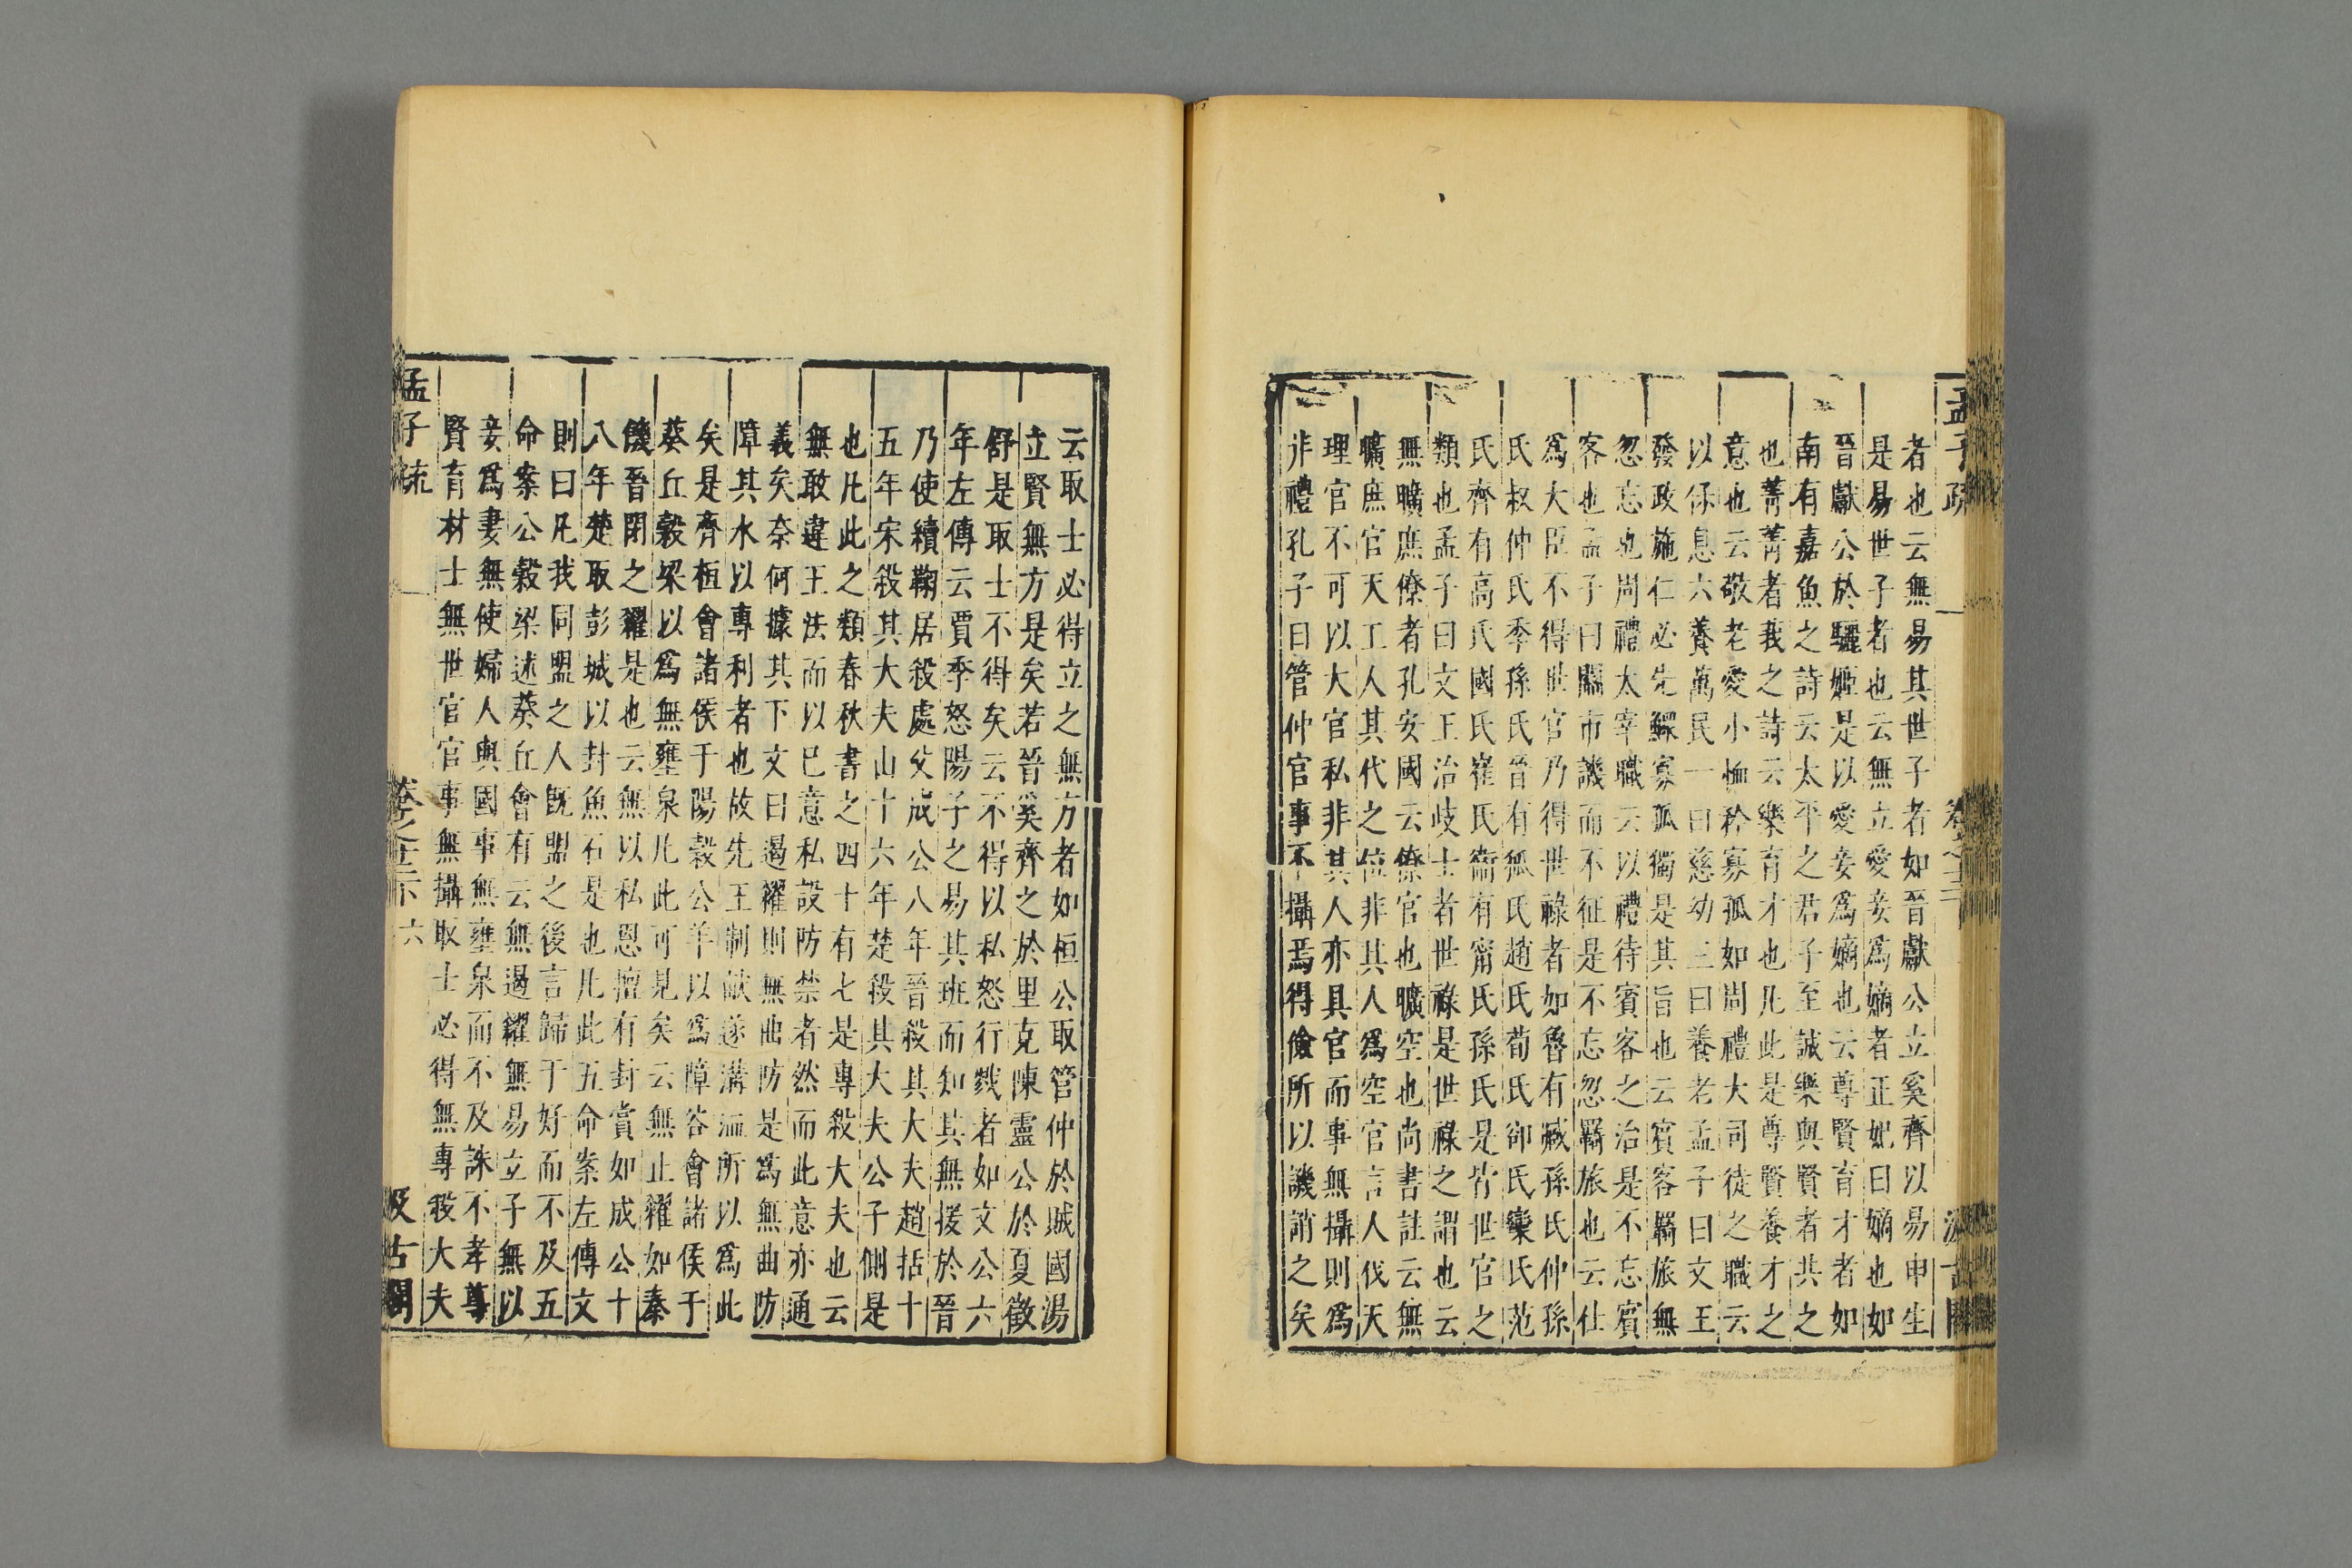 孟子疏
者也云無易其世子者如晉獻公立奚齊以易申生
是易世子者也云無立愛妾爲嫡者正妃曰嫡也如
晉獻公於驪姬是以愛妾爲嫡也云尊賢育才者如
南有嘉魚之詩云太平之君子至誠樂與賢者共之
也菁菁者我之詩云樂育才也凡此是尊賢養才之
意也云敬老愛小恤矜寡孤如周禮大司徒之職云
以保息六養萬民一曰慈幼二曰養老孟子曰文王
發政施仁必先鰥寡孤獨是其旨也云賓客羇旅無
忽忘也周禮太宰職云以禮待賓客之治是不忘賓
客也孟子曰關市譏而不征是不忘忽羇旅也云仕
爲大臣不得世官乃得世祿者如魯有臧孫氏仲孫
氏叔仲氏季孫氏晉有狐氏趙氏荀氏郤氏欒氏范
氏齊有高氏國氏崔氏衞有甯氏孫氏是皆世官之
類也孟子曰文王治岐士者世祿是世祿之謂也云
無曠庶僚者孔安國云僚官也曠空也尚書註云無
曠庶官天工人其代之位非其人爲空官言人伐天
理官不可以大官私非其人亦具官而事無攝則爲
非禮孔子曰管仲官事不攝焉得儉所以譏誚之矣
云取士必得立之無方者如桓公取管仲於賊國湯
立賢無方是矣若晉奚齊之於里克陳靈公於夏徵
舒是取士不得矣云不得以私怒行戮者如文公六
年左傳云賈季怒陽子之易其班而知其無援於晉
乃使續鞠居殺處父成公八年晉殺其大夫趙括十
五年宋殺其大夫山十六年楚殺其大夫公子側是
也凡此之類春秋書之四十有七是專殺大夫也云
無敢違王法而以巳意私設防禁者然而此意亦通
義矣奈何據其下文曰遏糴則無曲防是爲無曲防
障其水以專利者也故先王制畎遂溝洫所以爲此
矣是齊桓會諸侯于陽穀公羊以爲障谷會諸侯于
葵丘穀梁以爲無壅泉凡此可見矣云無止糴如秦
饑晉閉之糴是也云無以私恩擅有封賞如成公十
八年楚取彭城以封魚石是也凡此五命案左傳文
則曰凡我同盟之人旣盟之後言歸于好而不及五
命案公穀梁述葵丘會有云無遏糴無易立子無以
妾爲妻無使婦人與國事無壅泉而不及誅不孝尊
賢育材士無世官官事無攝取士必得無專殺大夫
孟子疏 卷之十二下 六 汲古閣